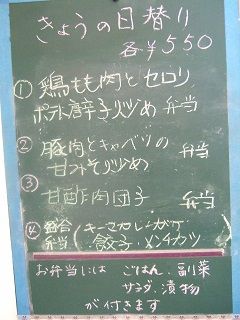 きょうの日替り
各¥550
① 鶏もも肉とセロリ
ポテト唐辛子炒め 弁当
② 豚肉とキャベツの
甘みそ炒め 弁当
③
甘酢肉団子 弁当
④ 組合 (キーマカレーがけ
弁当 餃子・メンチカツ
お弁当には ごはん、副菜
サラダ、漬物
が付きます